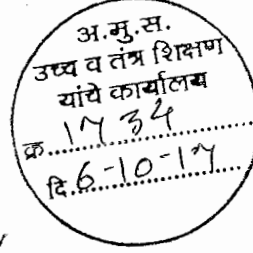 अ.मु.स.
उच्च व तंत्र शिक्षण
यांचे कार्यालय
क्र. 1734
दि. 6-10-17